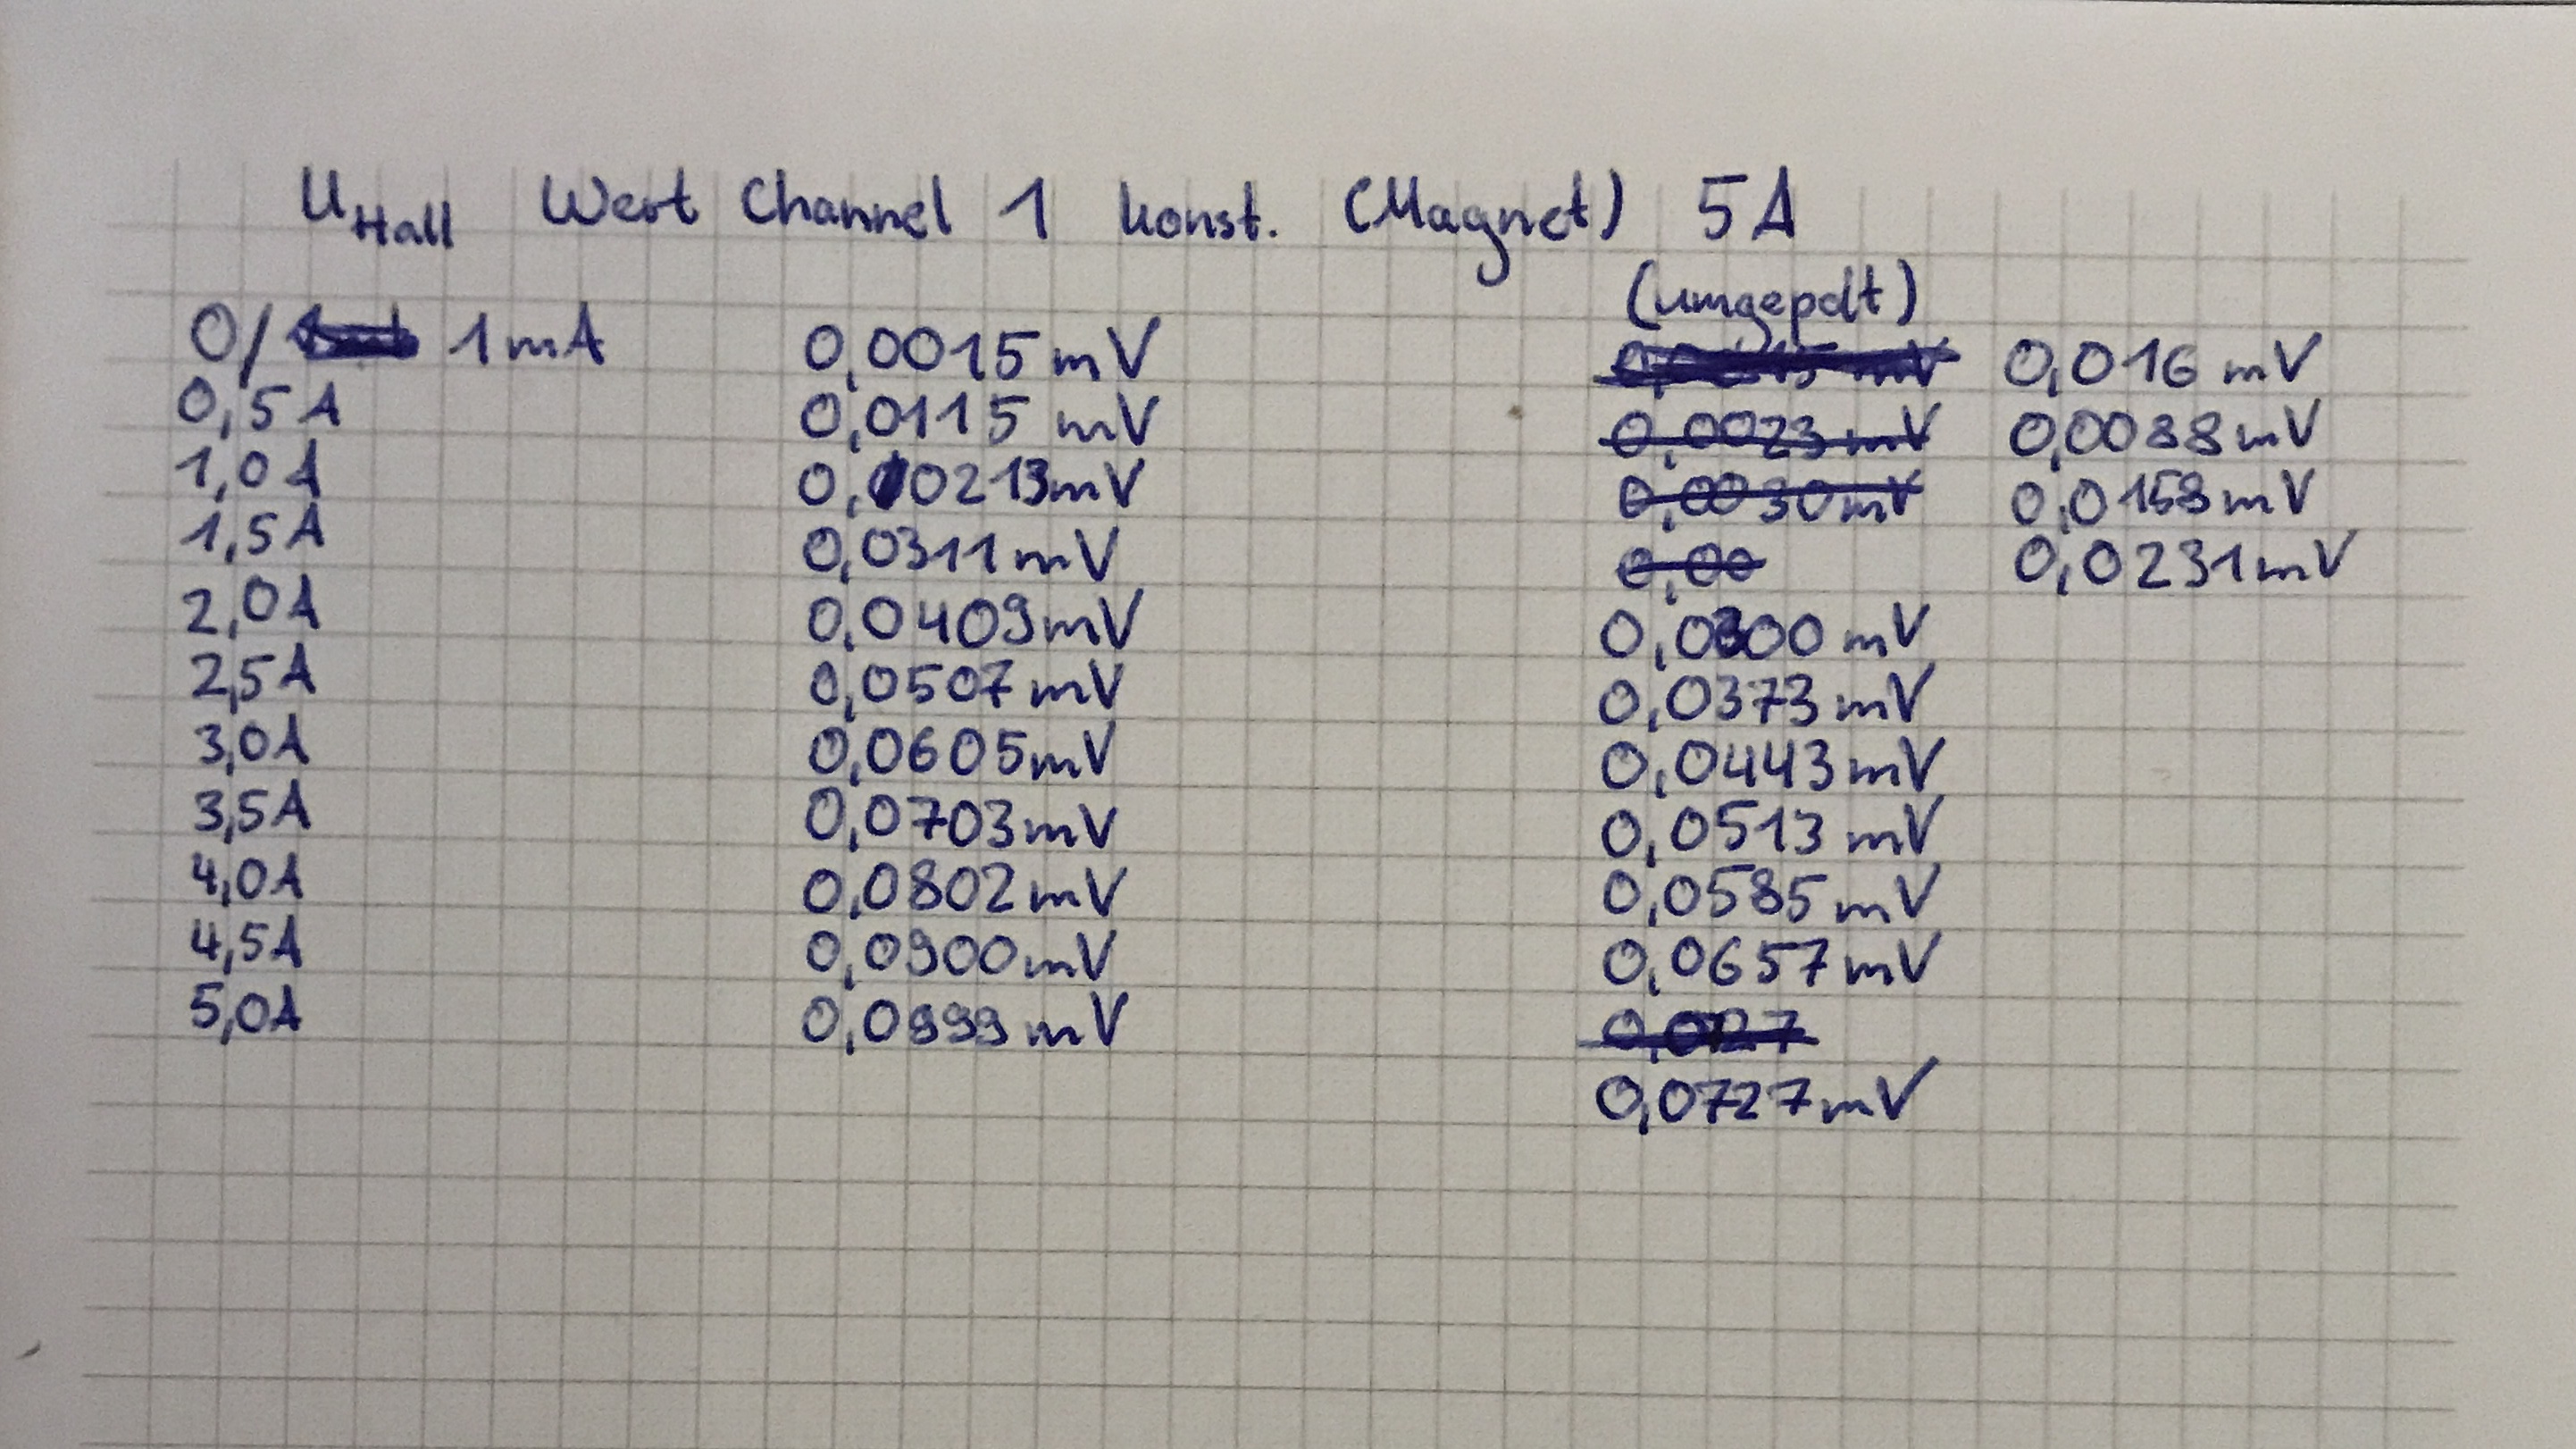 U_Hall Wert Channel 1 konst. (Magnet) 5A
(umgepolt)
0/ 1mA 0,0015 mV 0,016 mV
0,5A 0,0115 mV 0,0023 mV 0,0088mV
1,0A 0,0213mV 0,0030mV 0,0158mV
1,5A 0,0311mV 0,00 0,0231mV
2,0A 0,0409mV 0,0300 mV
2,5A 0,0507mV 0,0373mV
3,0A 0,0605mV 0,0443mV
3,5A 0,0703mV 0,0513mV
4,0A 0,0802mV 0,0585mV
4,5A 0,0900mV 0,0657mV
5,0A 0,0999mV
0,0727mV